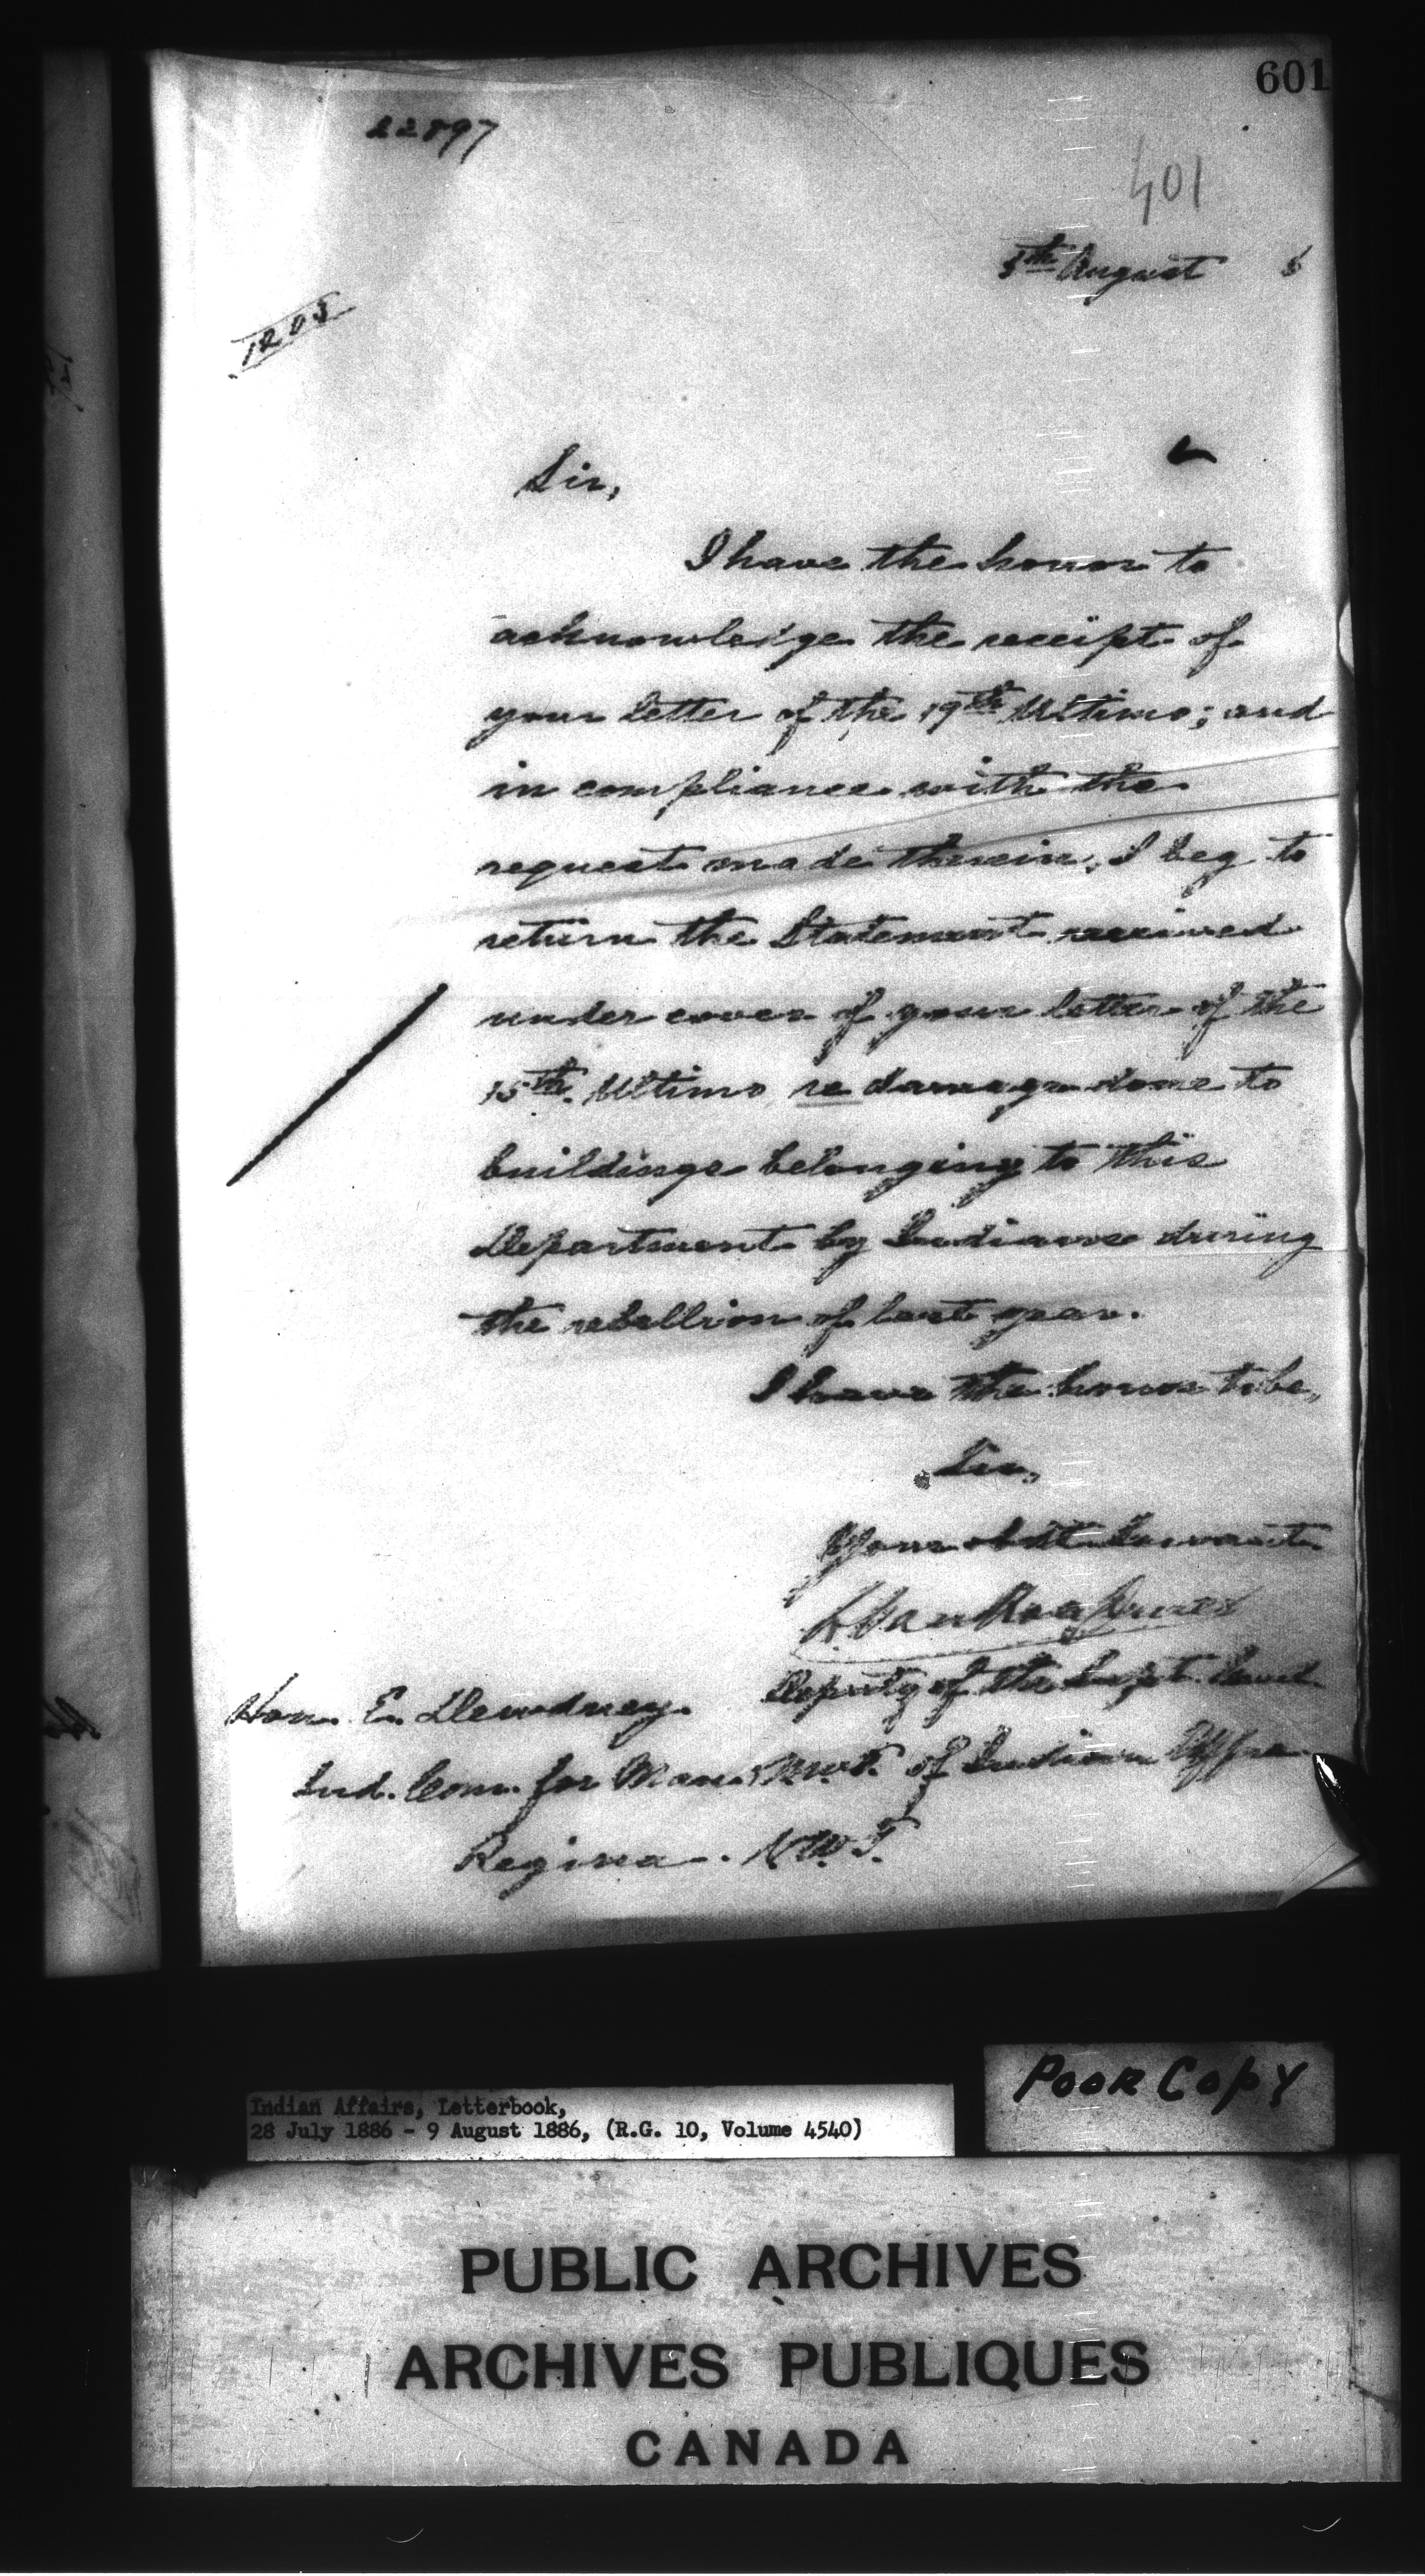 601
22897
401
5th August 6
1203
Sir,
I have the honor to
acknowledge the receipt of
your letter of the 19th Ultimo; and
in compliance with the
request made therein, I beg to
return the Statement received
under cover of your letter of the
15th. Ultimo re damage done to
buildings belonging to this
Department by Indians during
the rebellion of last year.
I have the honor to be,
Sir,
Your obdt. Servant
L Van Koughnet
Deputy of the Supt. Genl.
Hon. E. Dewdney.
of Indian Affrs.
Ind. Com. for Man. & N.W.T.
Regina. N.W.T.
Poor Copy
Indian Affairs, Letterbook,
28 July 1886 - 9 August 1886, (R.G. 10, Volume 4540)
PUBLIC ARCHIVES
ARCHIVES PUBLIQUES
CANADA